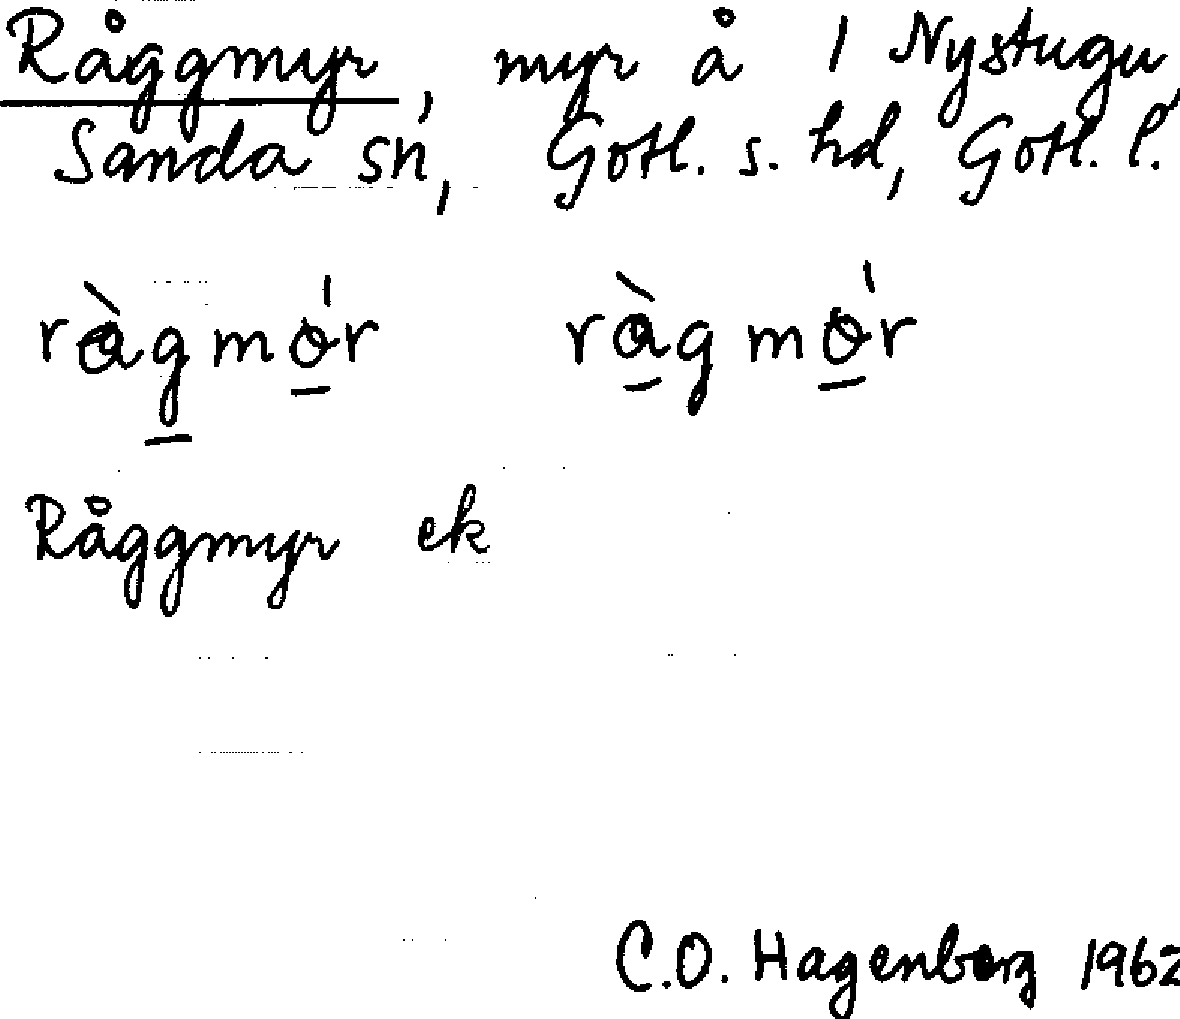 Råggmyr, myr å 1 Nystugu,
Sanda sn, Gotl. s. hd, Gotl. l.
rågmör rågmör
Råggmyr ek
C.O. Hagenberg 1962